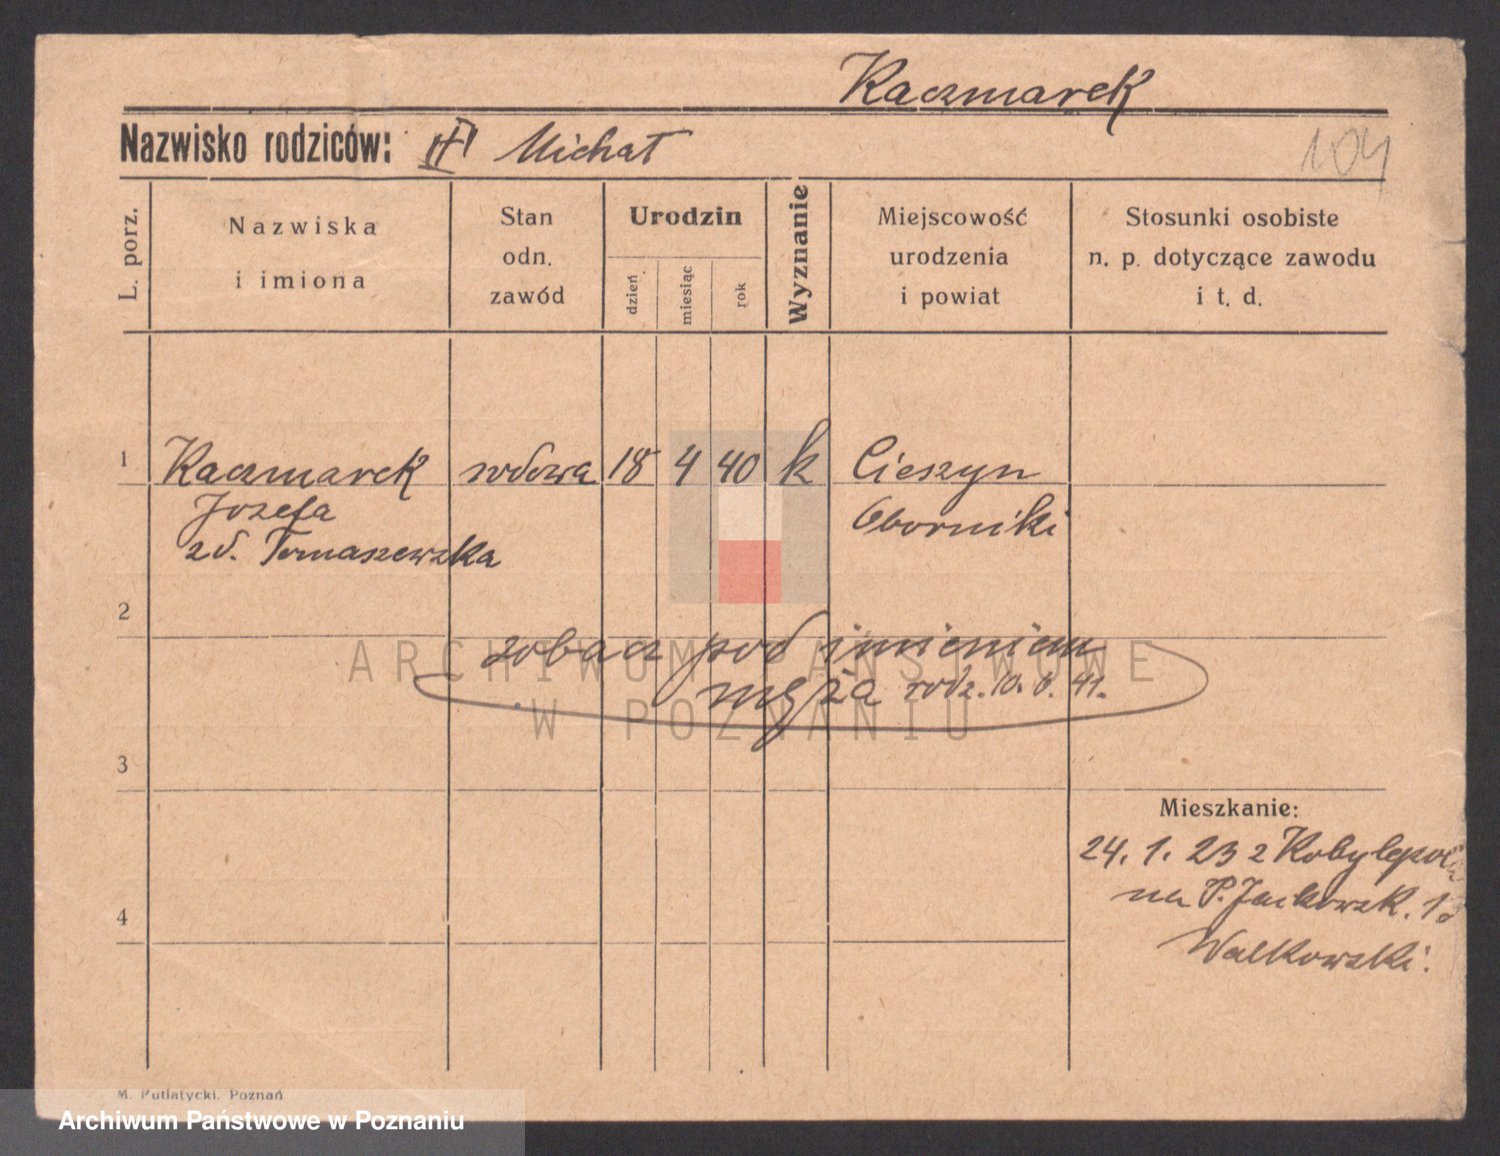 Kaczmarek
Nazwisko rodziców: Michał
104
L. porz.
Nazwiska
i imiona
Stan
odn.
zawód
Urodzin
dzień
miesiąc
rok
Wyznanie
Miejscowość
urodzenia
i powiat
Stosunki osobiste
n. p. dotyczące zawodu
i t. d.
1 Kaczmarek wdowa 18 4 40 k Cieszyn
Józefa Oborniki
zd. Tomaszewska
2
zobacz pod imieniem
męża rodz. 10. 6. 41.
ARCHIWUM PAŃSTWOWE
W POZNANIU
3
Mieszkanie:
24. 1. 23 z Kobylepola
na P. Jackowsk.
Walkowski.
4
M. Putiatycki, Poznań
Archiwum Państwowe w Poznaniu